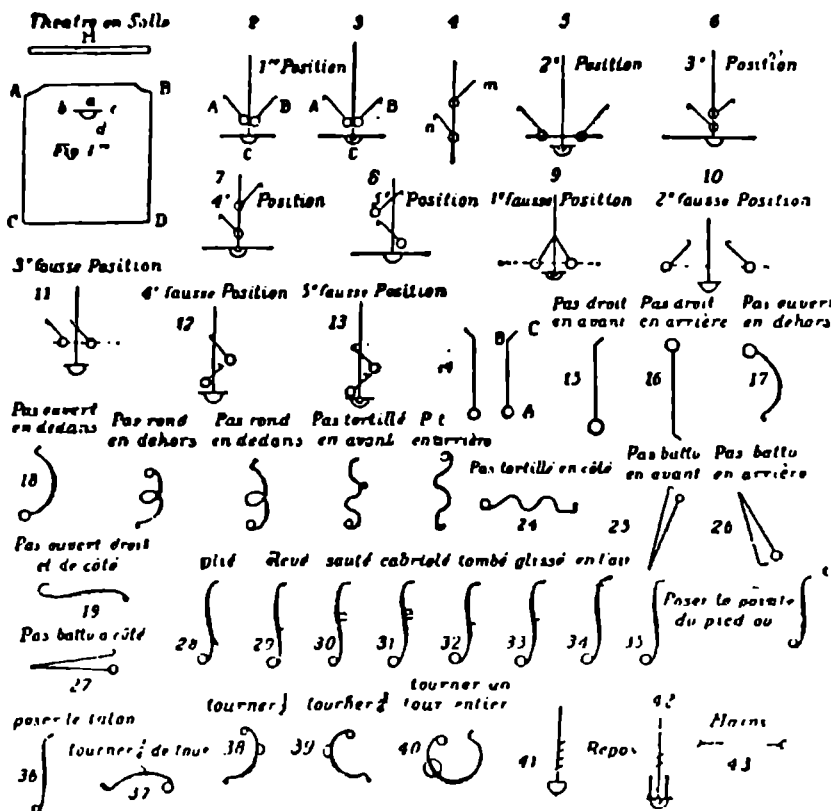 Theatre en Salle
H
2 3 4 5 6
1re Position
2e Position
3e Position
A B
b a c
d
Fig 1re
A B A B
C C
m
n
C D
7 8 9 10
4e Position
5e Position
1e fausse Position
2e fausse Position
3e fausse Position
11
4e fausse Position
12
5e fausse Position
13
14
B C
A
Pas droit
en avant
15
Pas droit
en arrière
16
Pas ouvert
en dehors
17
Pas ouvert
en dedans
18
Pas rond
en dehors
Pas rond
en dedans
Pas tortillé
en avant
P t
en arrière
Pas tortillé en côté
24
Pas battu
en avant
25
Pas battu
en arrière
26
Pas ouvert droit
et de côté
19
Pas battu a côté
27
plié élevé sauté cabriolé tombé glissé en l'air
28 29 30 31 32 33 34 35
Poser la pointe
du pied ou
poser le talon
36
tourner ¼ de tour
37
tourner ½
38
tourner ¾
39
tourner un
tour entier
40
41
Repos
42
Mains
43